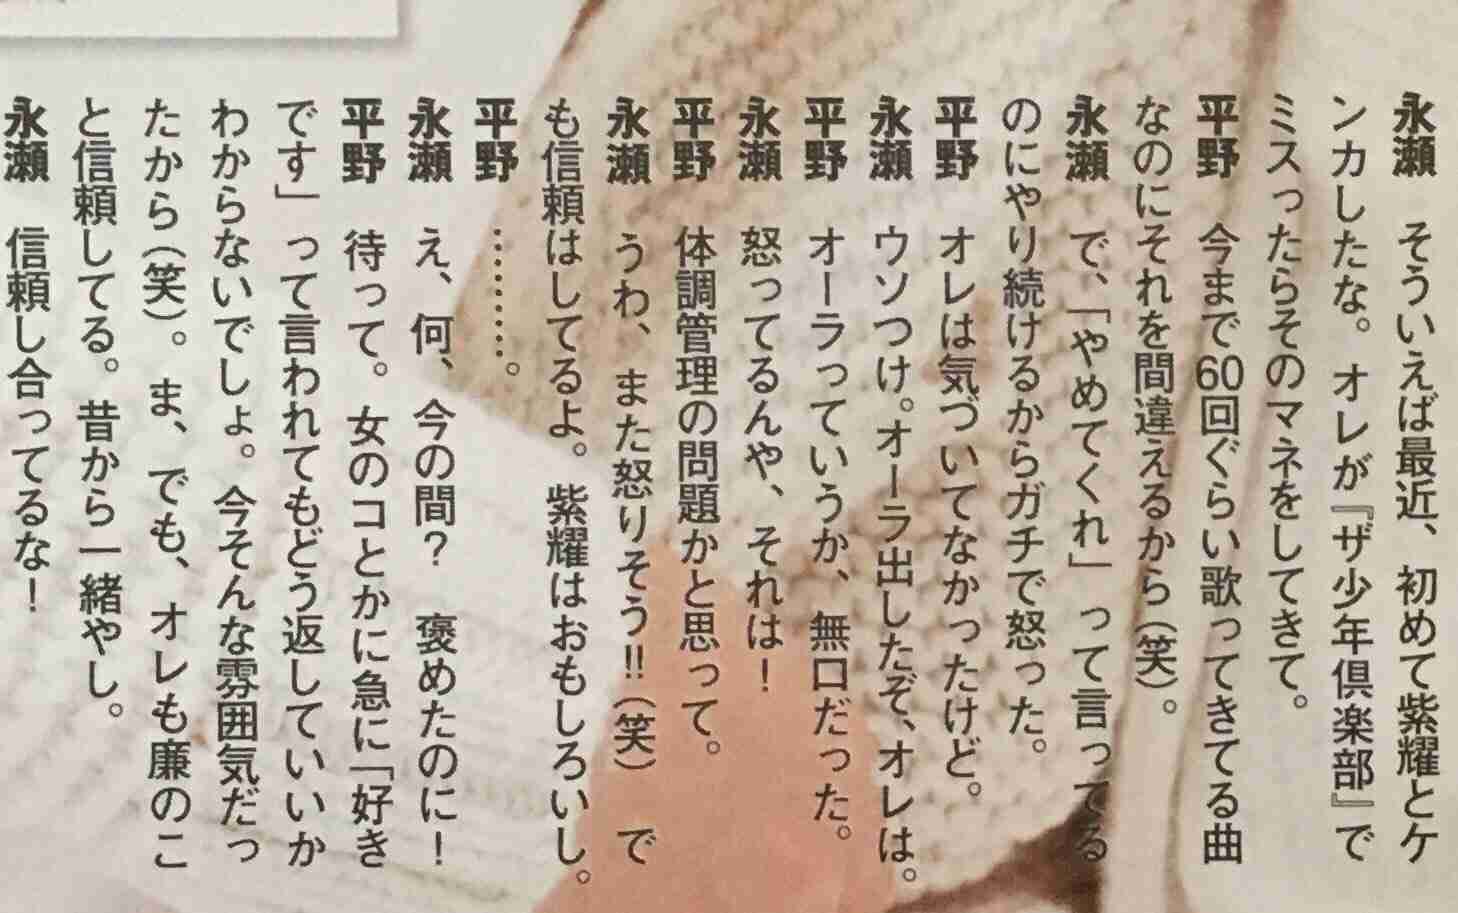 永瀬　そういえば最近、初めて紫耀とケ
ンカしたな。オレが『ザ少年倶楽部』で
ミスったらそのマネをしてきて。
平野　今まで60回ぐらい歌ってきてる曲
なのにそれを間違えるから(笑)。
永瀬　で、「やめてくれ」って言ってる
のにやり続けるからガチで怒った。
平野　オレは気づいてなかったけど。
永瀬　ウソつけ。オーラ出したぞ、オレは。
平野　オーラっていうか、無口だった。
永瀬　怒ってるんや、それは！
平野　体調管理の問題かと思って。
永瀬　うわ、また怒りそう!!(笑)　で
も信頼はしてるよ。紫耀はおもしろいし。
平野　………。
永瀬　え、何、今の間？　褒めたのに！
平野　待って。女のコとかに急に「好き
です」って言われてもどう返していいか
わからないでしょ。今そんな雰囲気だっ
たから(笑)。ま、でも、オレも廉のこ
と信頼してる。昔から一緒やし。
永瀬　信頼し合ってるな！